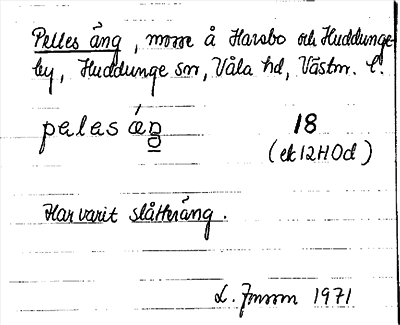 Pelles äng, mom å Harsbo och Huddunge-
by, Huddunge sn, Våla hd, Västm. l.
pelas
18
(ek12H0d)
Har varit slåtteräng.
L.
1971